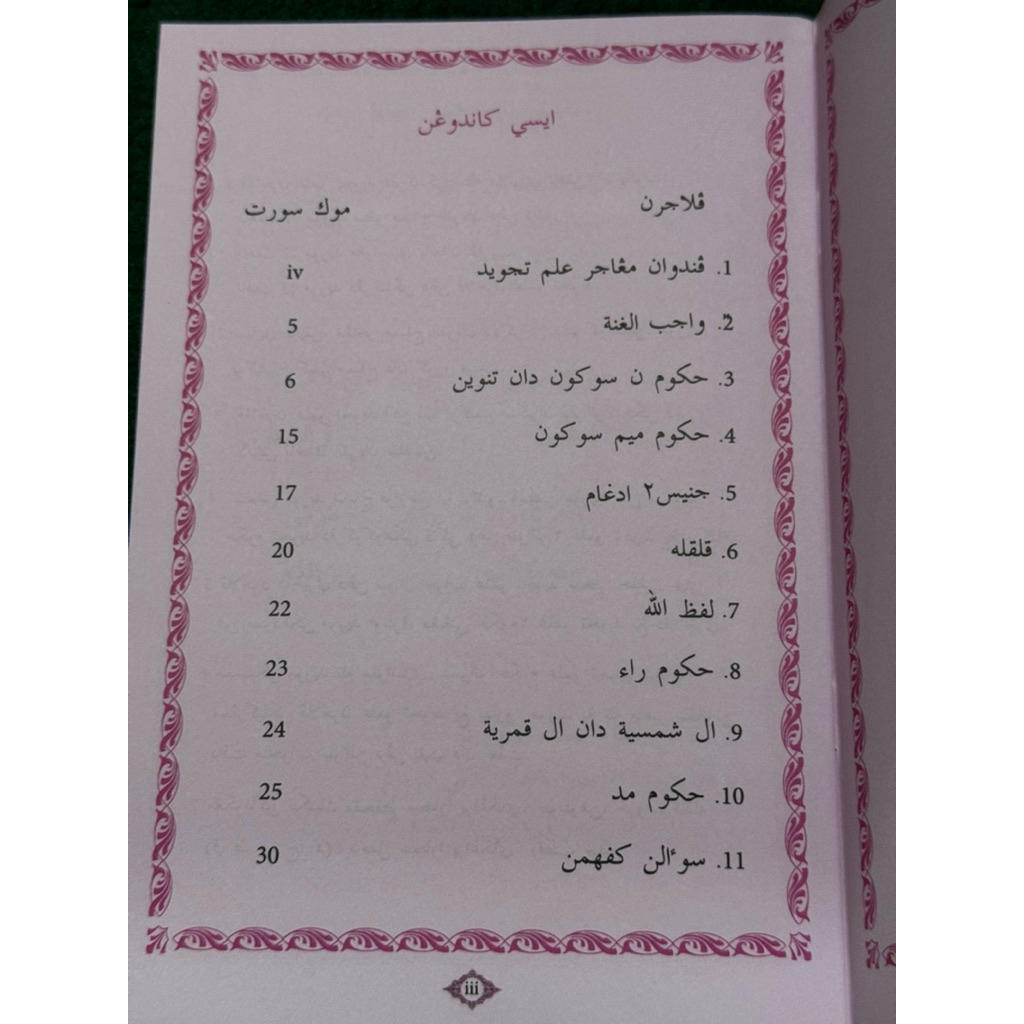 ايسي كاندوڠن
ڤلاجرن موك سورت
1. ڤندوان مڠاجر علم تجويد iv
2. واجب الغنة 5
3. حكوم ن سوكون دان تنوين 6
4. حكوم ميم سوكون 15
5. جنيس٢ ادغام 17
6. قلقله 20
7. لفظ الله 22
8. حكوم راء 23
9. ال شمسية دان ال قمرية 24
10. حكوم مد 25
11. سوءالن كفهمن 30
iii